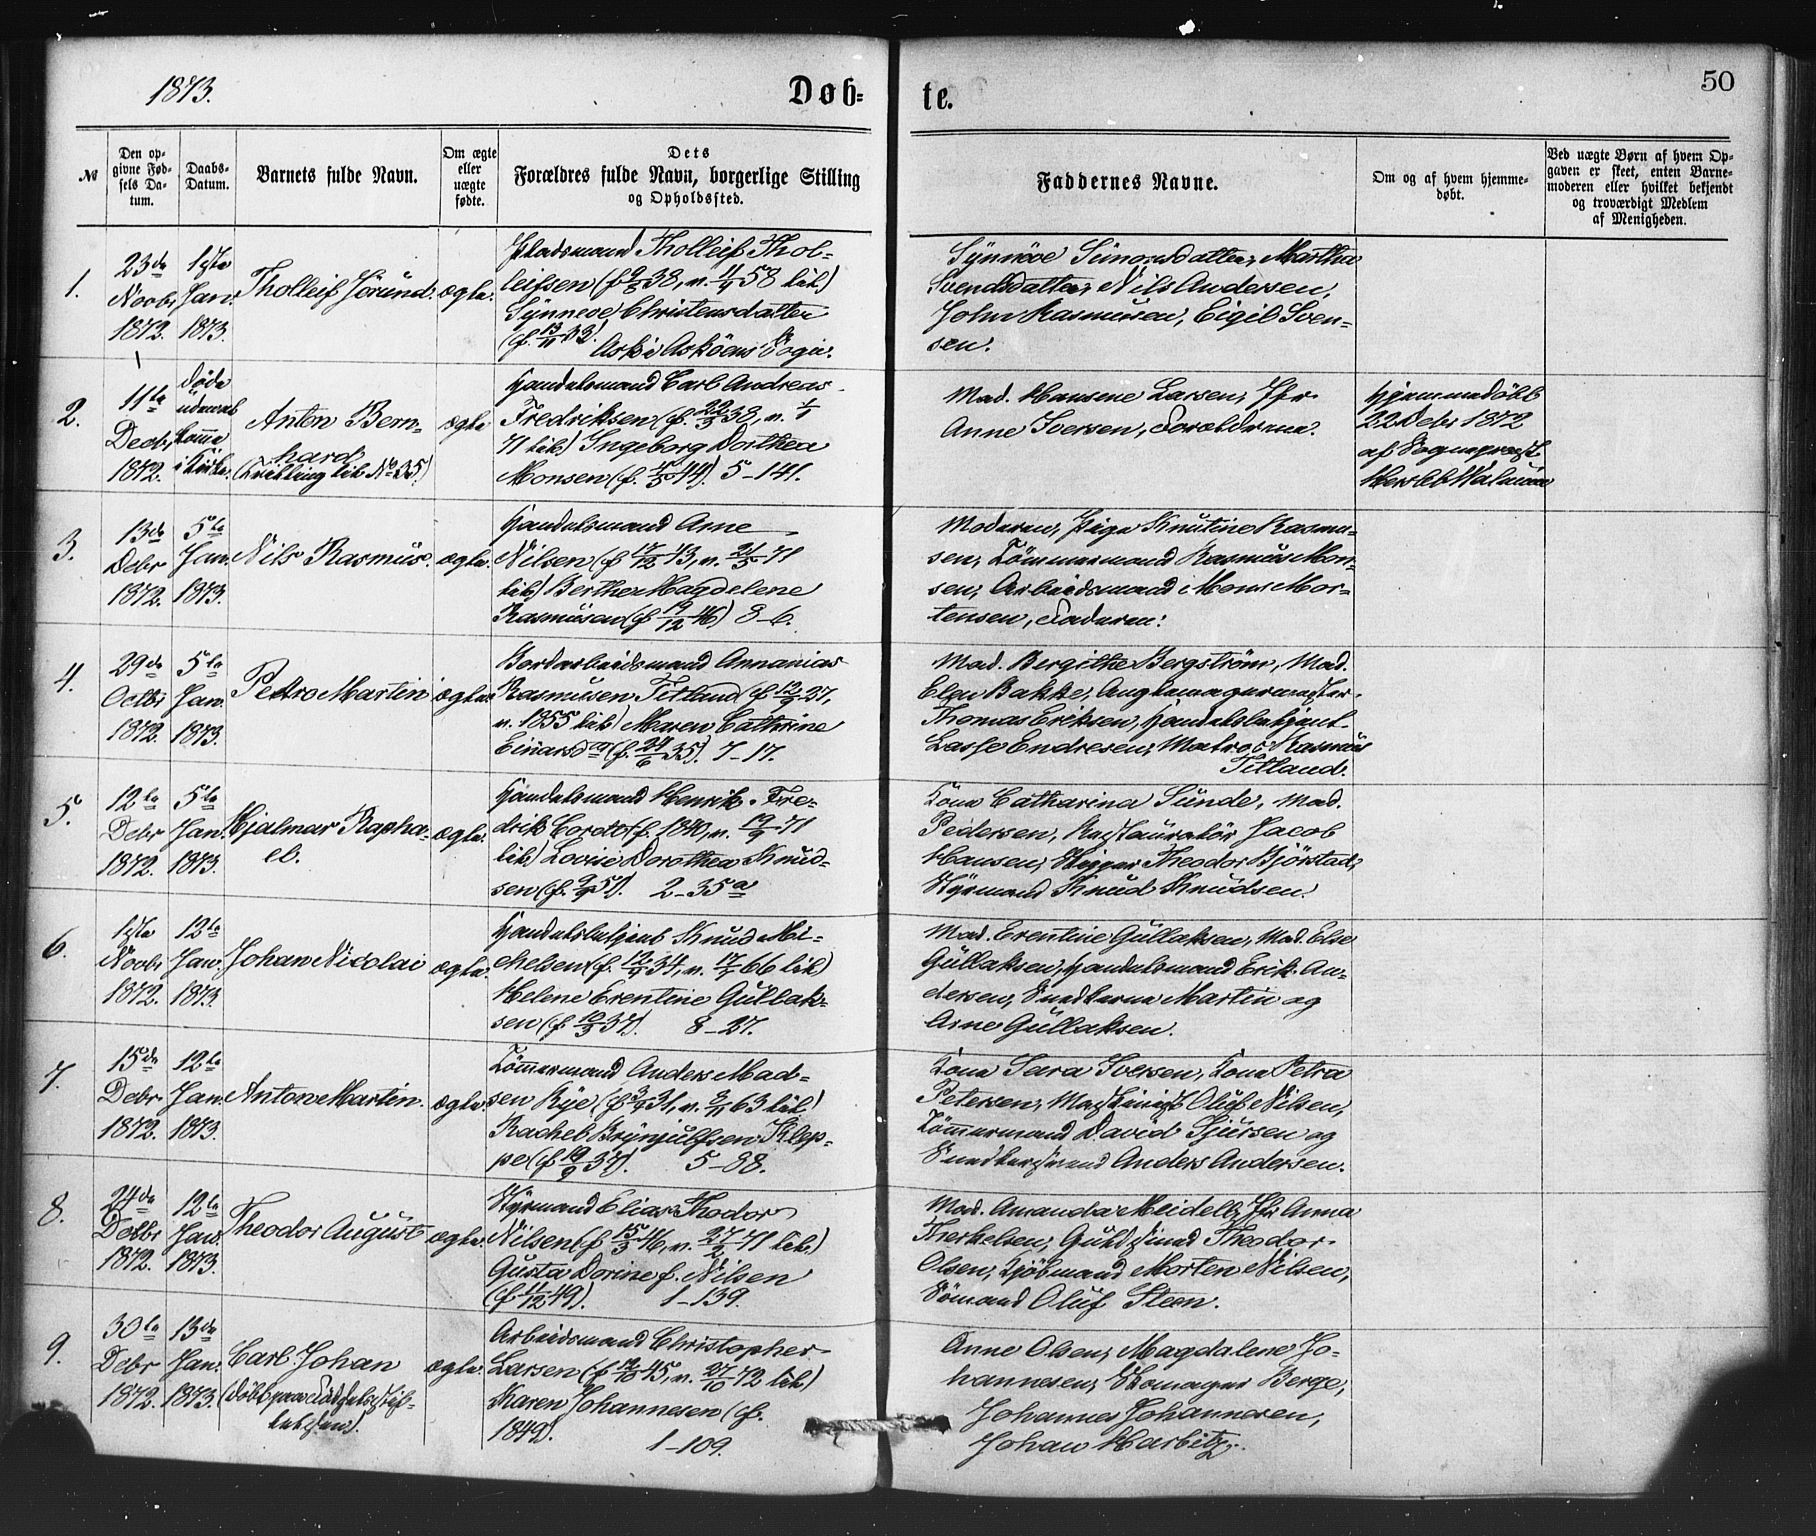 1873.
Døb-
te.
50
№
Den op-
givne Fød-
sels Da-
tum.
Daabs-
Datum.
Barnets fulde Navn.
Om ægte
eller
uægte
fødte.
Dets
Forældres fulde Navn, borgerlige Stilling
og Opholdssted.
Faddernes Navne.
Om og af hvem hjemme-
døbt.
Ved uægte Børn af hvem Op-
gaven er skeet, enten Barne-
moderen eller hvilket bekjendt
og troværdigt Medlem
af Menigheden.
1.
23de
Novbr
1872.
1ste
Jan.
1873.
Tholleif Jørund.
ægte.
Pladsmand Tholleif Thol-
leifsen (f. 9/5 38, v. 4/7 58 til)
Synneve Christensdatter
(f. 13/11 32). Ask i Askøens Sogn.
Synnøve Simonsdatter, Martha
Svendsdatter, Nils Andersen,
John Rasmusen, Eigil Sven-
sen.
2.
11te
Decbr
1872.
døde
udenat
komme
i Kirke.
Anton Bern-
hard
(Tvilling til No 35)
ægte
Handelsmand Carl Andreas
Fredriksen (f. 22/3 38, v. 1/1
71 til) Ingeborg Dorthea
Monsen (f. 15/3 44). 5-141.
Mad. Hansene Larsen, Jfr
Anne Iversen, Forældrene.
Hjemmedøbt
22 Debr 1872
af Sognepræst
Hersleb Walnum
3.
13de
Debr
1872.
5te
Jan.
1873.
Nils Rasmus.
ægte.
Handelsmand Arne
Nilsen (f 17/12 43, v. 21/5 71
til) Berthe Magdelene
Rasmusen (f 19/12 46) 8-6.
Moderen, Pige Knutine Rasmu-
sen, Tømmermand Rasmus Mon-
sen, Arbeidsmand Mons Mor-
tensen, Faderen.
4.
29de
Octbr
1872.
5te
Jan.
1873.
Petro Martin
ægte.
Bordarbeidsmand Annanias
Rasmusen Titland (f 12/9 27,
v. 1855 til) Maren Cathrine
Einarsdr (f. 24/6 35). 7-17.
Mad. Bergithe Bergström, Mad.
Elen Bakke,
Thomas Eriksen, Handelsbetjent
Lasse Endresen, Matros Rasmus
Titland.
5.
12te
Debr
1872.
5te
Jan.
1873.
Hjalmar Rapha-
el.
ægte.
Handelsmand Henrik Fre-
drik Cordt (f. 1840, v. 19/9 71
til) Lovise Dorothea Knud-
sen (f. 9/9 51). 2-35a
Kone Catharina Sunde, Mad.
Pedersen, Restauratør Jacob
Hansen, Skipper Theodor Bjørstad,
Styrmand Knud Knudsen.
6.
1ste
Novbr
1872.
12te
Jan.
1873.
Johan Nicolai
ægte.
Handelsbetjent Knud Mi-
chelsen (f. 12/7 34, v. 17/5 66 til)
Helene Erentine Gullak-
sen (f 10/3 37). 8-27.
Mad. Erentine Gullaksen, Mad. Else
Gullaksen, Handelsmand Erik An-
dersen, Snedkerne Martin og
Arne Gullaksen.
7.
15de
Debr
1872.
12te
Jan
1873.
Anton Martin.
ægte.
Tømmermand Anders Mad-
sen Rye (f 3/9 31, v. 3/11 63 til)
Rachel Brynjulfsen Klep-
pe (f 19/9 37). 5-88.
Kone Sara Iversen, Kone Petra
Petersen, Maskinist Oluf Nilsen,
Tømmermand David Sjursen og
Snedkersvend Anders Andersen.
8.
24de
Decbr
1872.
12te
Jan.
1873.
Theodor August
ægte.
Styrmand Elias Thodor
Nilsen (f 15/3 46, v. 27/2 71 til)
Gusta Dorine f. Nilsen
(f 11/12 49). 1-139.
Mad. Amanda Meidell, Jfr Anna
Therkelsen, Guldsmed Theodor
Olsen, Kjøbmand Morten Nilsen,
Sømand Oluf Steen.
9.
30te
Debr
1872.
13de
Jan.
1873.
Carl Johan
(døbt paa Fødselsstif-
telsen).
ægte.
Arbeidsmand Christopher
Larsen (f 12/10 45, v. 27/10 72 til)
Karen Johannesen (f.
1849). 1-109.
Anne Olsen, Magdalene Jo-
hannesen, Skomager Berge,
Johannes Johannesen,
Johan Harbitz.